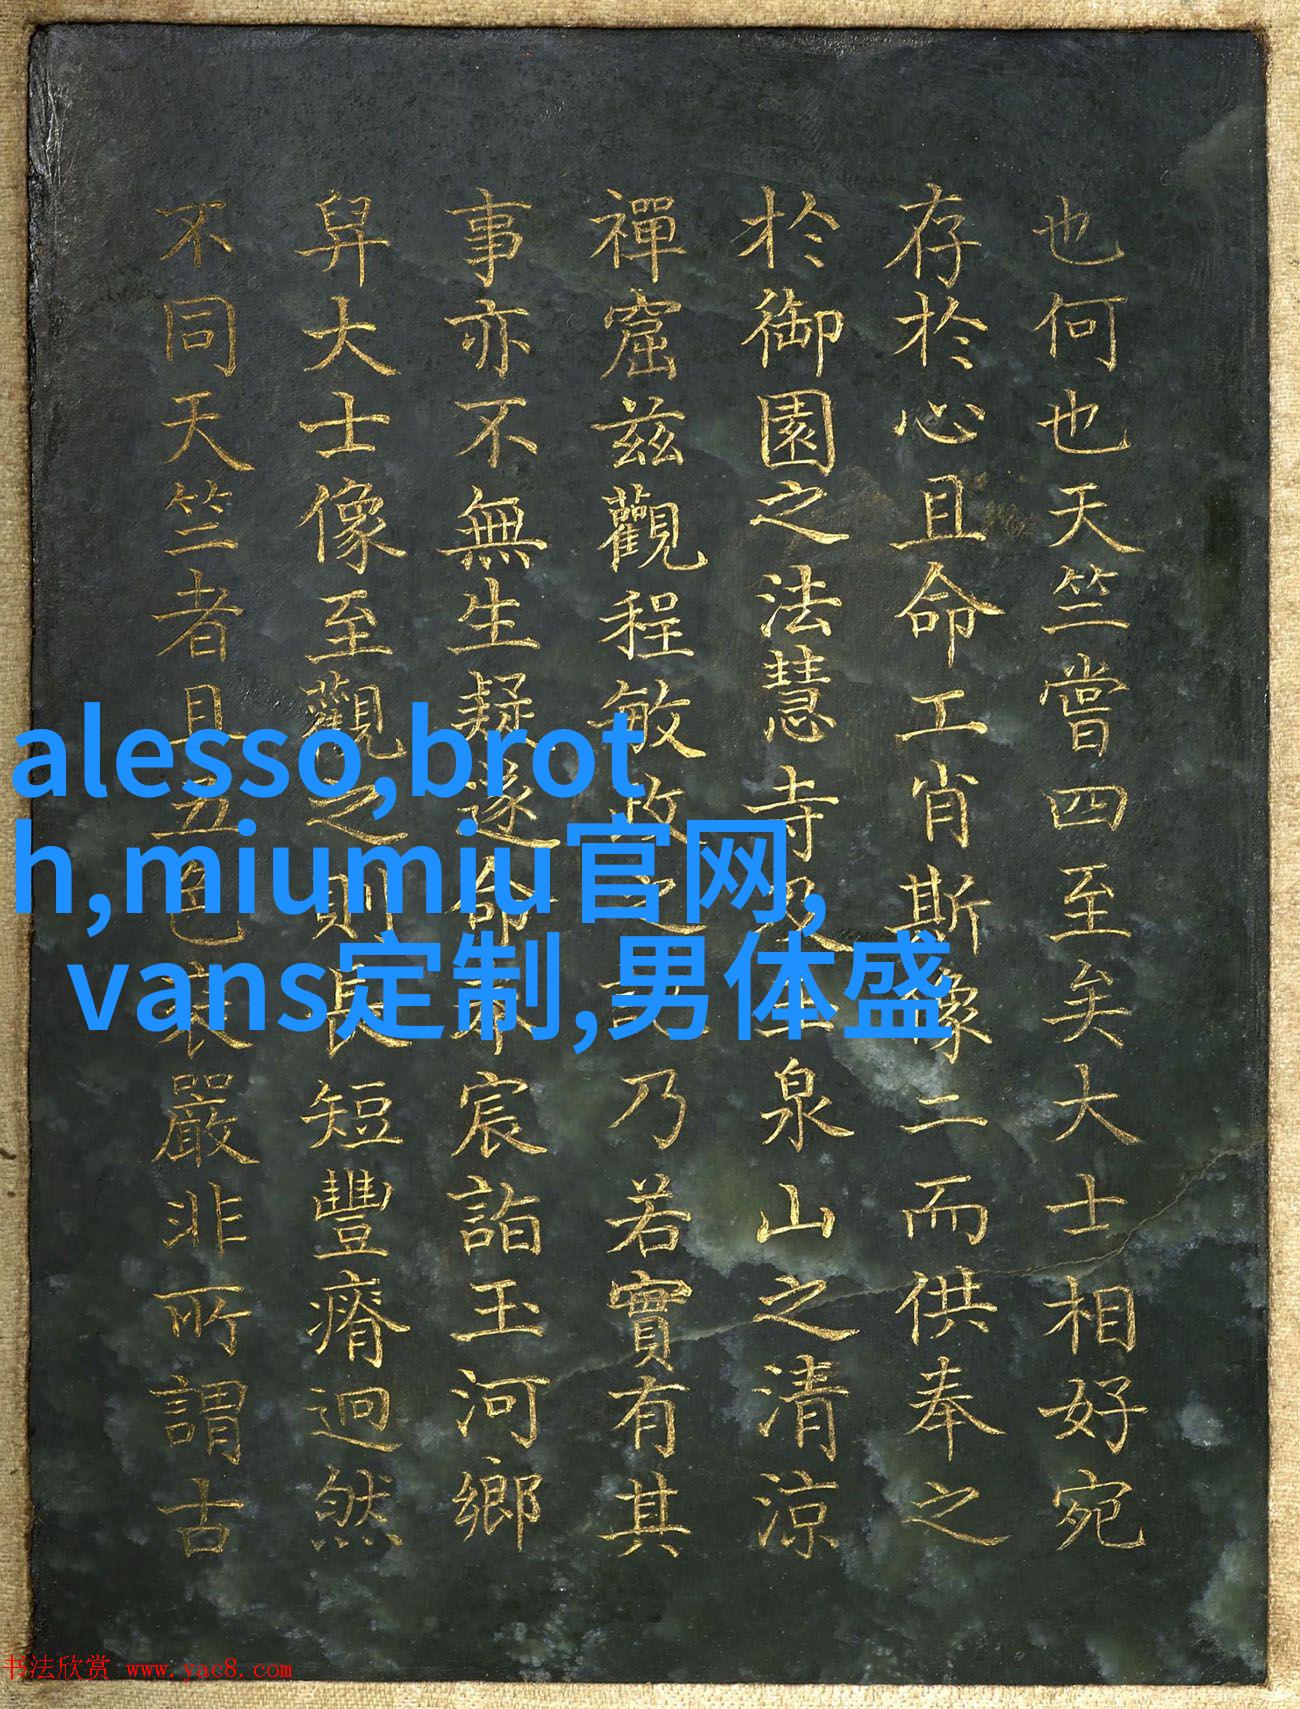 也何也天竺嘗四至矣大士相好宛
存於心且命工肖斯像二而供奉之
於御園之法慧寺及玉泉山之清涼
禪窟兹觀程敏政之記乃若實有其
事亦不無生疑遂命宸詣玉河鄉
舁大士像至觀之則長短豐瘠迥然
不同天竺者且五色嚴非所謂古
alesso,brot
h,miumiu官网,
vans定制,男体盛
书法欣赏 www.yac8.com